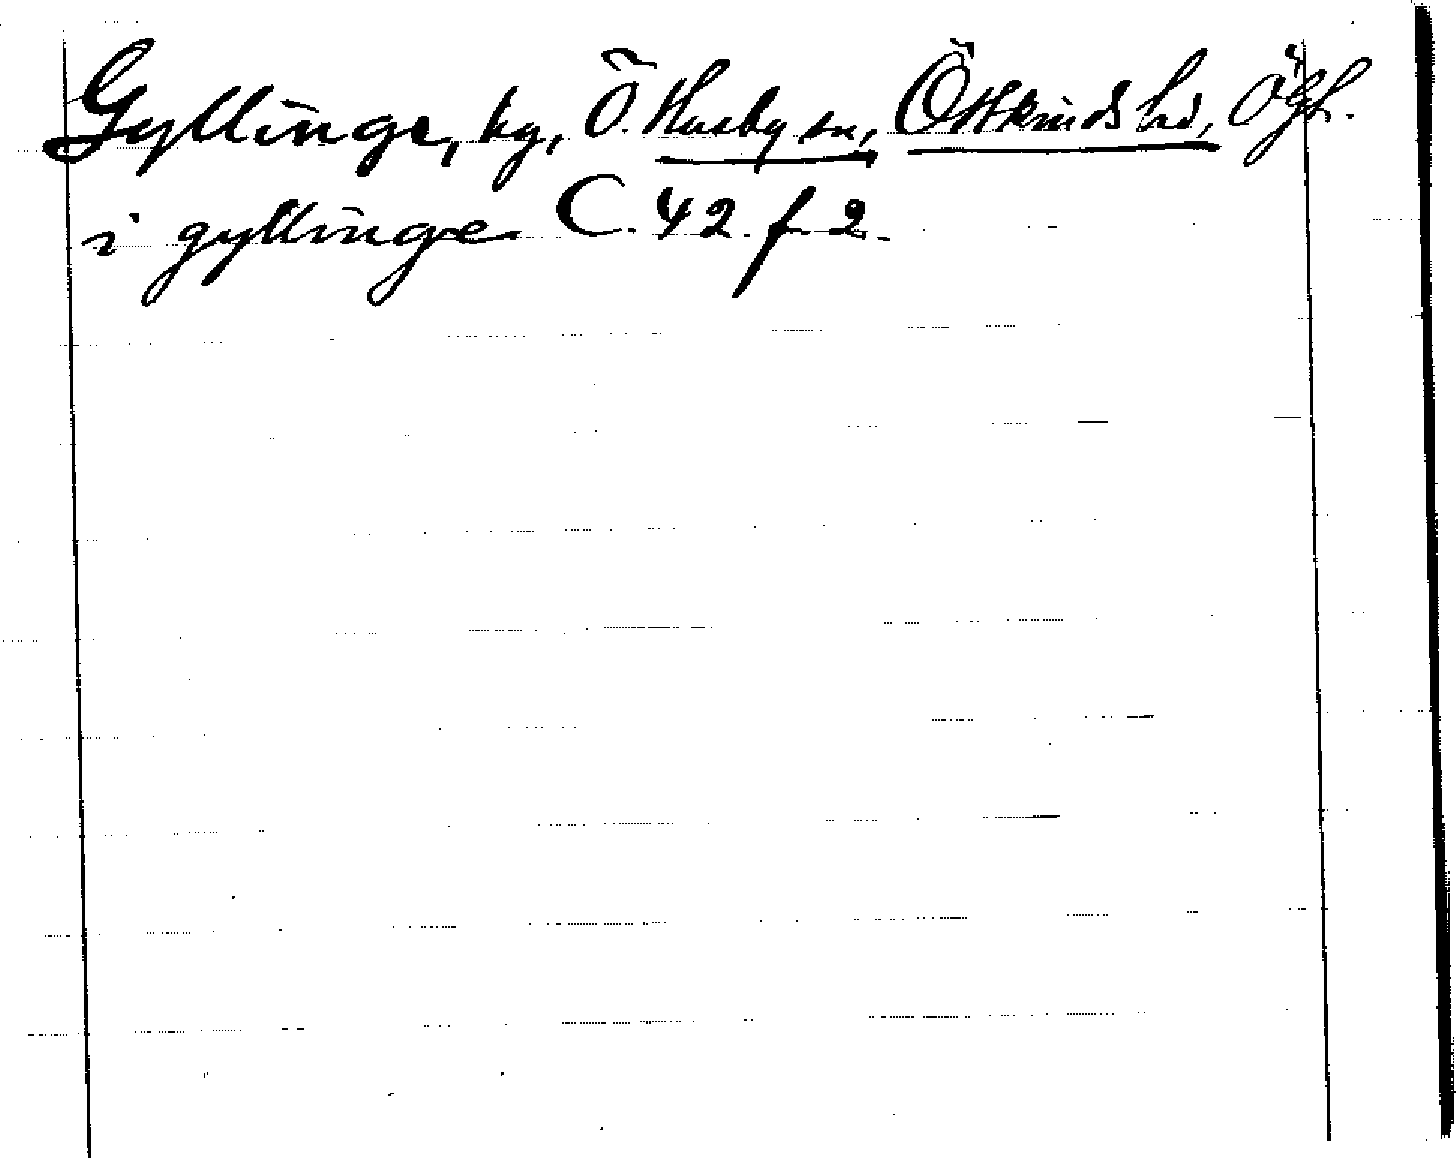 Gyllinge, by, Ö. Husby sn, Östkinds hd, Ögl.
i gyllinge C. 42 f 2.